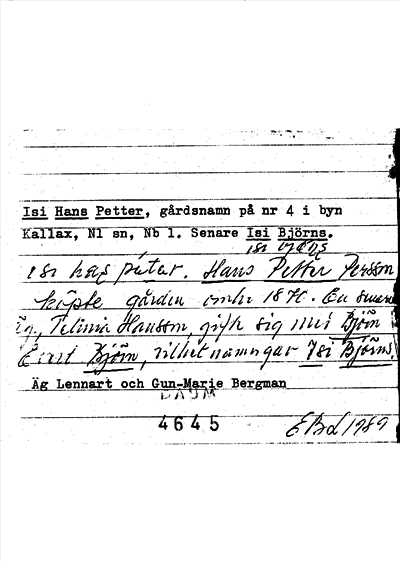 Isi Hans Petter, gårdsnamn på nr 4 i byn
Kallax, Nl sn, Nb l. Senare Isi Björns.
isi
isi has pitar. Hans Petter Persson
köpte gården omkr 1870. En
Telma Hansson, gifte sig med Björn
Björn, vilket namngav Isi Björns.
Äg Lennart och Gun-Marie Bergman
DAUM
4645
EBd 1989